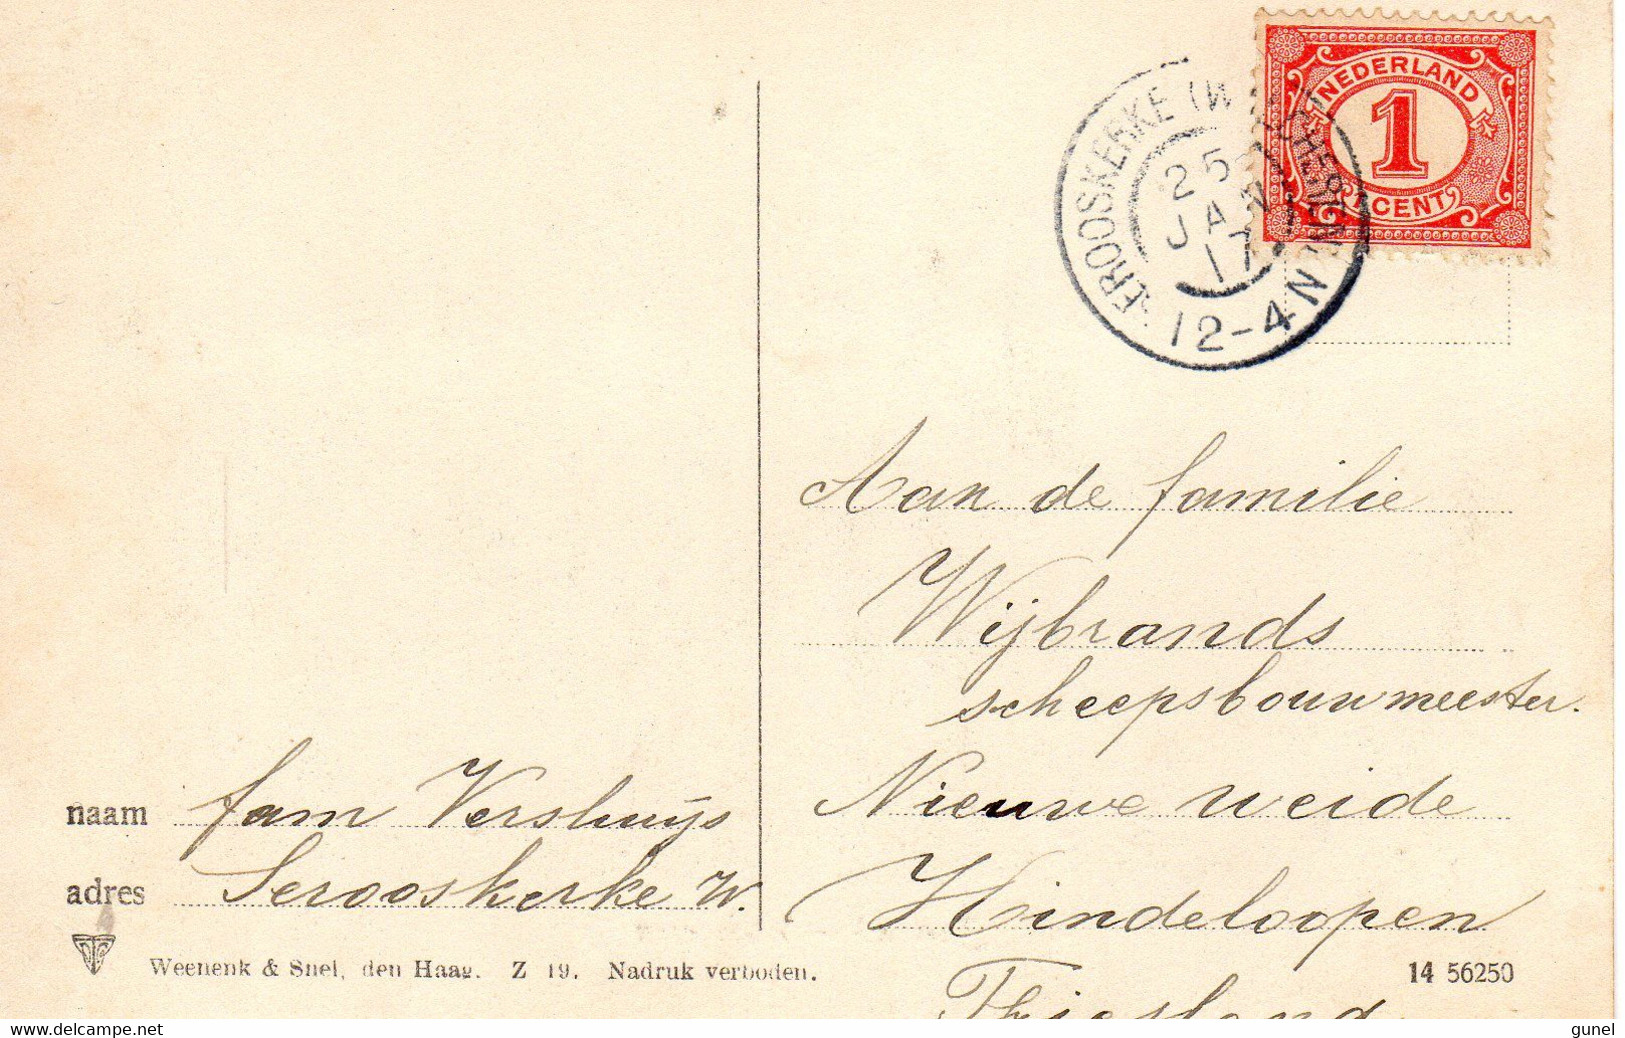 NEDERLAND
1
CENT
EROOSKERKE (W
25
JAN
17
12-4N
Aan de familie
Wijbrands
scheepsbouwmeester.
Nieuwe weide
Hindeloopen
Friesland
naam fam Versluijs
adres Serooskerke W.
Weenenk & Snel, den Haag. Z 19. Nadruk verboden.
14 56250
www.delcampe.net
gunel